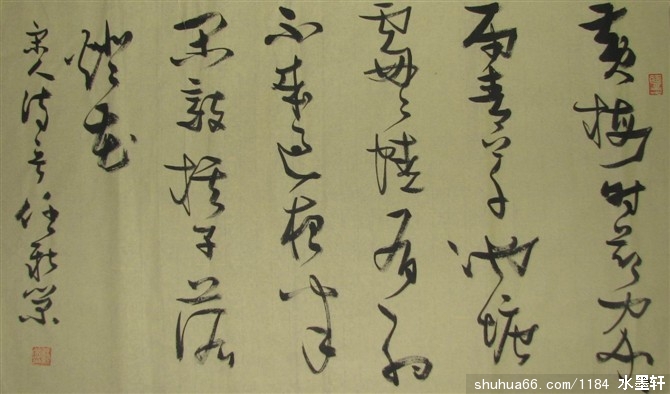 黄梅时节家家
雨青草池塘
處處蛙有约
不来过夜半
闲敲棋子落
燈花
宋人诗 任
shuhua66.com/1184 水墨轩